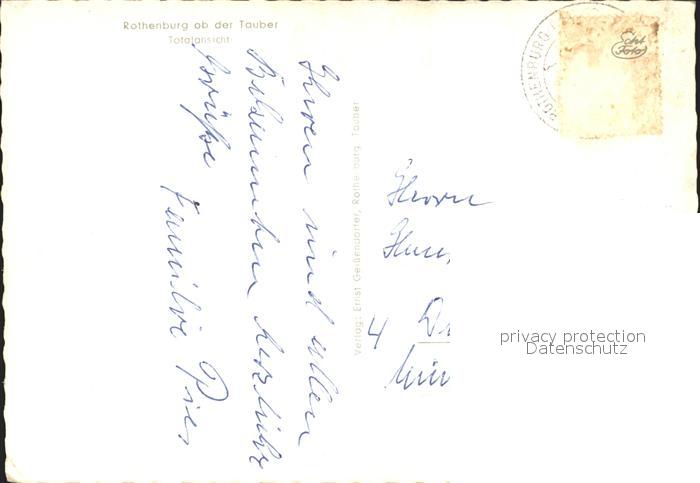 Rothenburg ob der Tauber
Totalansicht
Ihnen und allen
Bekannten herzliche
Grüße
Familie Pies
Verlag: Ernst Geißendörfer, Rothenburg Tauber
ROTHENBURG
Echt
Foto
Herrn
4
privacy protection
Datenschutz